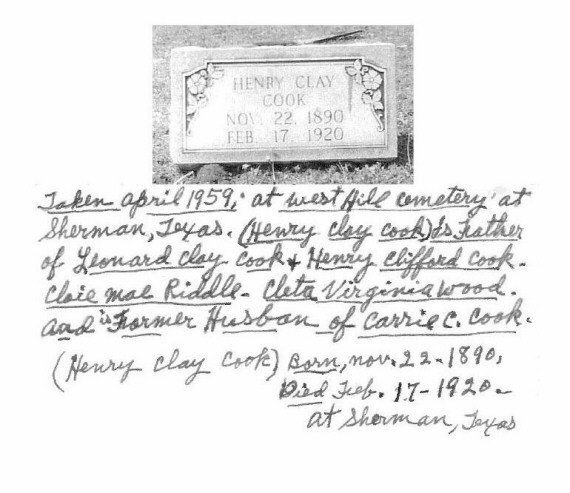 HENRY CLAY
COOK
NOV. 22, 1890
FEB. 17, 1920
Taken april 1959, at west Hill cemetery at
Sherman, Texas. (Henry clay cook) is Father
of Leonard Clay cook & Henry clifford cook.
Cloie mae Riddle - Cleta Virginia wood.
and is Former Husban of Carrie C. Cook.
(Henry Clay Cook) Born, nov. 22 - 1890,
Died Feb. 17 - 1920 -
at Sherman, Texas